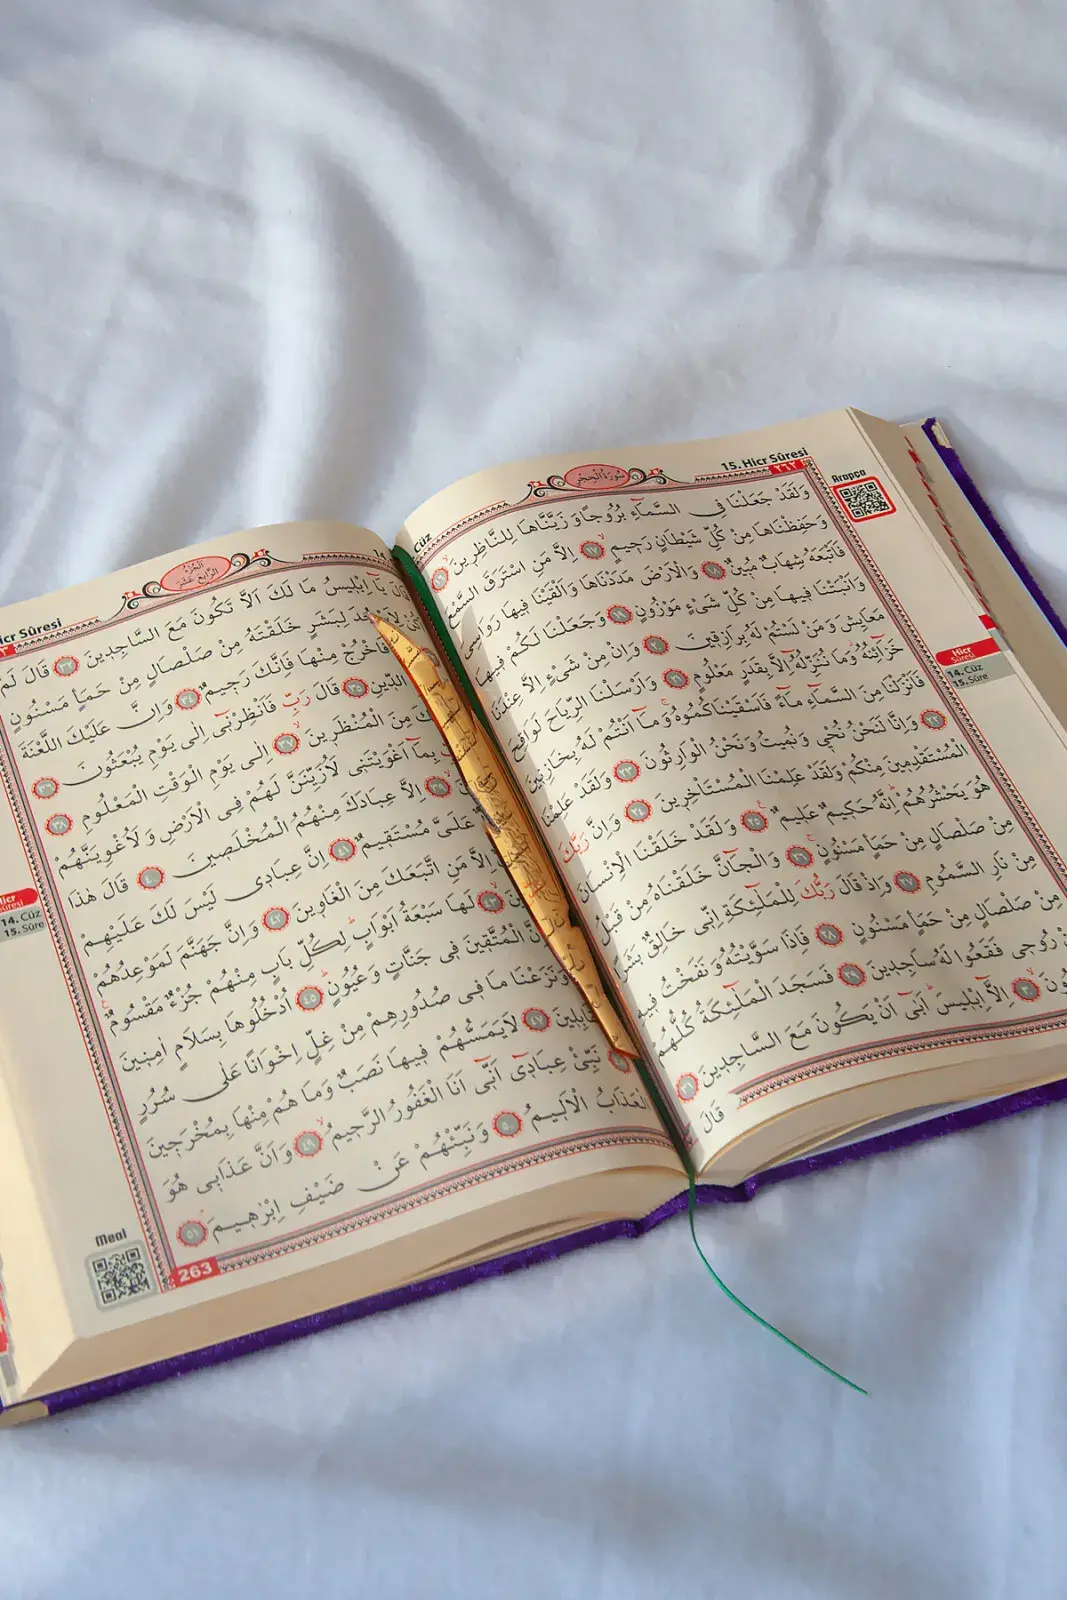 15. Hicr Sûresi
٢٦٢
سُورَةُ الْحِجْرِ
Cüz
Arapça
وَلَقَدْ جَعَلْنَا فِي السَّمَآءِ بُرُوجًا وَزَيَّنَّاهَا لِلنَّاظِرِينَ ١٦
وَحَفِظْنَاهَا مِنْ كُلِّ شَيْطَانٍ رَجِيمٍ ١٧ اِلَّا مَنِ اسْتَرَقَ السَّمْعَ
فَاَتْبَعَهُ شِهَابٌ مُبِينٌ ١٨ وَالْاَرْضَ مَدَدْنَاهَا وَاَلْقَيْنَا فِيهَا رَوَاسِيَ
وَاَنْبَتْنَا فِيهَا مِنْ كُلِّ شَيْءٍ مَوْزُونٍ ١٩ وَجَعَلْنَا لَكُمْ فِيهَا
مَعَايِشَ وَمَنْ لَسْتُمْ لَهُ بِرَازِقِينَ ٢٠ وَاِنْ مِنْ شَيْءٍ اِلَّا عِنْدَنَا
خَزَآئِنُهُ وَمَا نُنَزِّلُهُٓ اِلَّا بِقَدَرٍ مَعْلُومٍ ٢١ وَاَرْسَلْنَا الرِّيَاحَ لَوَاقِحَ
فَاَنْزَلْنَا مِنَ السَّمَآءِ مَآءً فَاَسْقَيْنَاكُمُوهُ وَمَآ اَنْتُمْ لَهُ بِخَازِنِينَ
٢٢ وَاِنَّا لَنَحْنُ نُحْيِ وَنُمِيتُ وَنَحْنُ الْوَارِثُونَ ٢٣ وَلَقَدْ عَلِمْنَا
الْمُسْتَقْدِمِينَ مِنْكُمْ وَلَقَدْ عَلِمْنَا الْمُسْتَاْخِرِينَ ٢٤ وَاِنَّ رَبَّكَ
هُوَ يَحْشُرُهُمْ اِنَّهُ حَكِيمٌ عَلِيمٌ ٢٥ وَلَقَدْ خَلَقْنَا الْاِنْسَانَ
مِنْ صَلْصَالٍ مِنْ حَمَاٍ مَسْنُونٍ ٢٦ وَالْجَآنَّ خَلَقْنَاهُ مِنْ قَبْلُ
مِنْ نَارِ السَّمُومِ ٢٧ وَاِذْ قَالَ رَبُّكَ لِلْمَلٰٓئِكَةِ اِنِّي خَالِقٌ بَشَرًا
مِنْ صَلْصَالٍ مِنْ حَمَاٍ مَسْنُونٍ ٢٨ فَاِذَا سَوَّيْتُهُ وَنَفَخْتُ فِيهِ
مِنْ رُوحِي فَقَعُوا لَهُ سَاجِدِينَ ٢٩ فَسَجَدَ الْمَلٰٓئِكَةُ كُلُّهُمْ
٣٠ اِلَّٓا اِبْلِيسَ اَبٰٓى اَنْ يَكُونَ مَعَ السَّاجِدِينَ ٣١
قَالَ
Hicr
Sûresi
14. Cüz
15. Sûre
Hicr Sûresi
اَلْجُزْءُ
الرَّابِعَ عَشَرَ
قَالَ يَآ اِبْلِيسُ مَا لَكَ اَلَّا تَكُونَ مَعَ السَّاجِدِينَ ٣٢ قَالَ لَمْ
لِاَسْجُدَ لِبَشَرٍ خَلَقْتَهُ مِنْ صَلْصَالٍ مِنْ حَمَاٍ مَسْنُونٍ
فَاخْرُجْ مِنْهَا فَاِنَّكَ رَجِيمٌ ٣٤ وَاِنَّ عَلَيْكَ اللَّعْنَةَ
الدِّينِ ٣٥ قَالَ رَبِّ فَاَنْظِرْنِٓي اِلٰى يَوْمِ يُبْعَثُونَ ٣٦
مِنَ الْمُنْظَرِينَ ٣٧ اِلٰى يَوْمِ الْوَقْتِ الْمَعْلُومِ ٣٨
بِمَآ اَغْوَيْتَنِي لَاُزَيِّنَنَّ لَهُمْ فِي الْاَرْضِ وَلَاُغْوِيَنَّهُمْ
٣٩ اِلَّا عِبَادَكَ مِنْهُمُ الْمُخْلَصِينَ ٤٠ قَالَ هٰذَا
عَلَيَّ مُسْتَقِيمٌ ٤١ اِنَّ عِبَادِي لَيْسَ لَكَ عَلَيْهِمْ
اِلَّا مَنِ اتَّبَعَكَ مِنَ الْغَاوِينَ ٤٢ وَاِنَّ جَهَنَّمَ لَمَوْعِدُهُمْ
٤٣ لَهَا سَبْعَةُ اَبْوَابٍ لِكُلِّ بَابٍ مِنْهُمْ جُزْءٌ مَقْسُومٌ
اِنَّ الْمُتَّقِينَ فِي جَنَّاتٍ وَعُيُونٍ ٤٥ اُدْخُلُوهَا بِسَلَامٍ اٰمِنِينَ
وَنَزَعْنَا مَا فِي صُدُورِهِمْ مِنْ غِلٍّ اِخْوَانًا عَلٰى سُرُرٍ
٤٧ لَا يَمَسُّهُمْ فِيهَا نَصَبٌ وَمَا هُمْ مِنْهَا بِمُخْرَجِينَ
نَبِّئْ عِبَادِٓي اَنِّٓي اَنَا الْغَفُورُ الرَّحِيمُ ٤٩ وَاَنَّ عَذَابِي هُوَ
الْعَذَابُ الْاَلِيمُ ٥٠ وَنَبِّئْهُمْ عَنْ ضَيْفِ اِبْرٰهِيمَ ٥١
Hicr
Sûresi
14. Cüz
15. Sûre
Meal
263